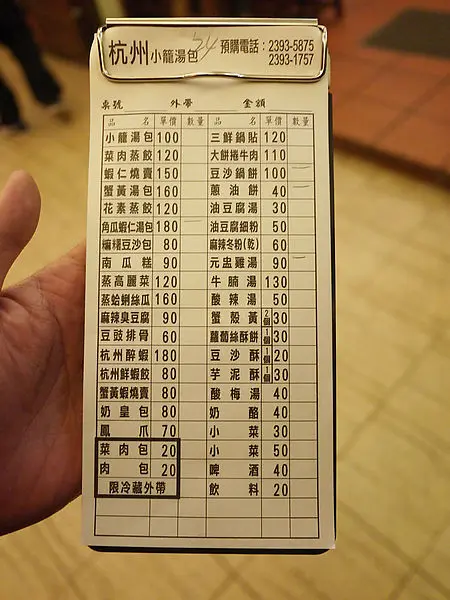 杭州小籠湯包 54 預購電話：2393-5875
2393-1757
桌號 外帶 金額
品名 單價 數量 品名 單價 數量
小籠湯包 100 三鮮鍋貼 120
菜肉蒸餃 120 大餅捲牛肉 110
蝦仁燒賣 150 豆沙鍋餅 100
蟹黃湯包 160 蔥油餅 40
花素蒸餃 120 油豆腐湯 30
角瓜蝦仁湯包 180 油豆腐細粉 50
豆沙包 80 麻辣冬粉(乾) 60
南瓜糕 90 元盅雞湯 90
蒸高麗菜 120 牛腩湯 130
蒸蛤蜊絲瓜 160 酸辣湯 50
麻辣臭豆腐 90 蟹殼黃 2個 30
豆豉排骨 60 蘿蔔絲酥餅 1個 30
杭州醉蝦 180 豆沙酥 1個 20
杭州鮮蝦餃 80 芋泥酥 1個 30
蟹黃蝦燒賣 80 酸梅湯 40
奶皇包 80 奶酪 40
鳳爪 70 小菜 30
菜肉包 20 小菜 50
肉包 20 啤酒 40
限冷藏外帶 飲料 20